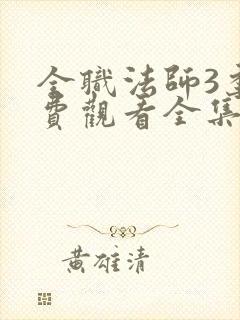 全職法師3
費觀看全集
黃雄清